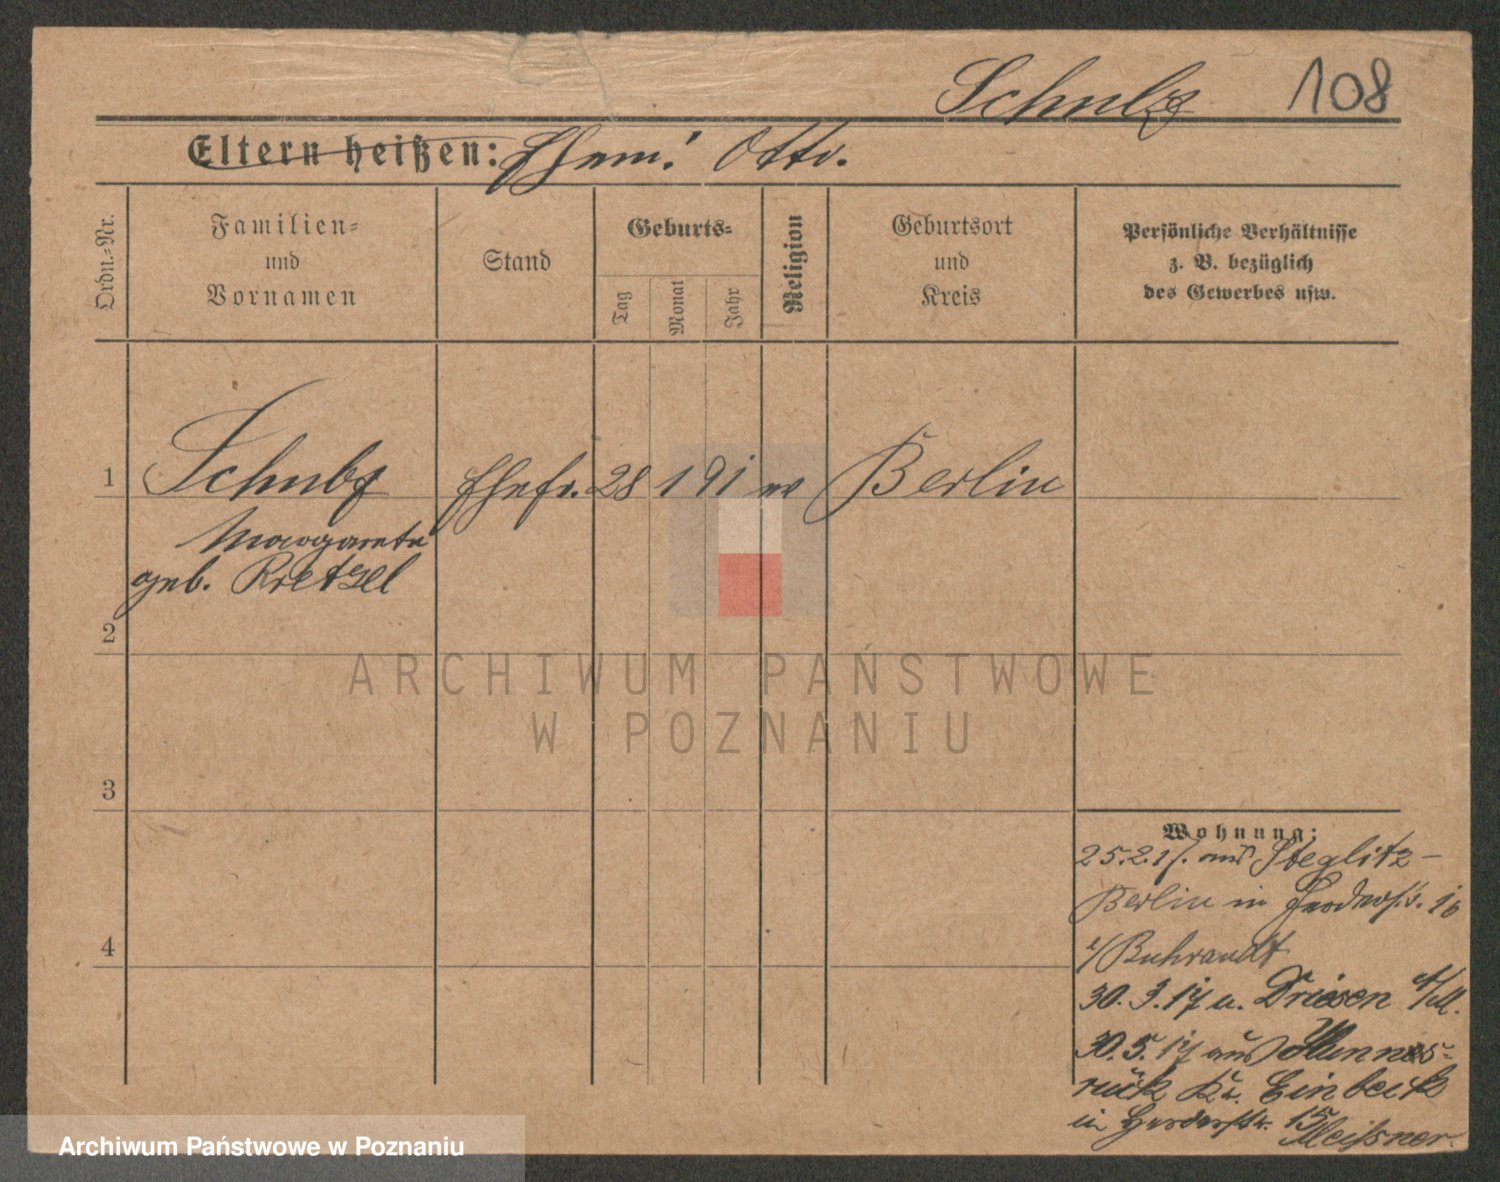 Schulz 108
Eltern heißen: Ehem: Otto.
Ordn.-Nr.
Familien-
und
Vornamen
Stand
Geburts-
Tag
Monat
Jahr
Religion
Geburtsort
und
Kreis
Persönliche Verhältnisse
z. B. bezüglich
des Gewerbes usw.
1 Schulz Ehefr. 28 1 91 ev Berlin
Margarete
geb. Kretzel
2
3
4
Wohnung:
25.2.17. aus Steglitz-
Berlin in 16
b/
30. 3. 17 n. Driesen
30. 5. 17 aus Hunnes-
rück Kr. Einbeck
in Herderstr. 15
Meißner.
ARCHIWUM PAŃSTWOWE
W POZNANIU
Archiwum Państwowe w Poznaniu